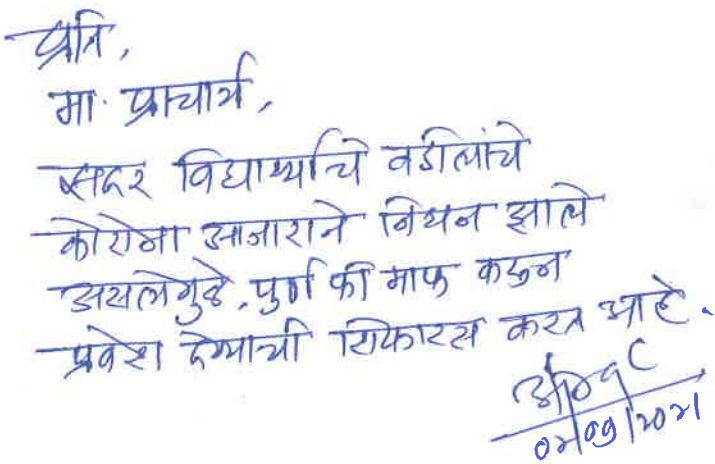 प्रति,
मा. प्राचार्य,
सदर विद्यार्थ्याचे वडीलांचे
कोरोना आजाराने निधन झाले
असलेमुळे, पुर्ण फी माफ करून
प्रवेश देण्याची शिफारस करत आहे.